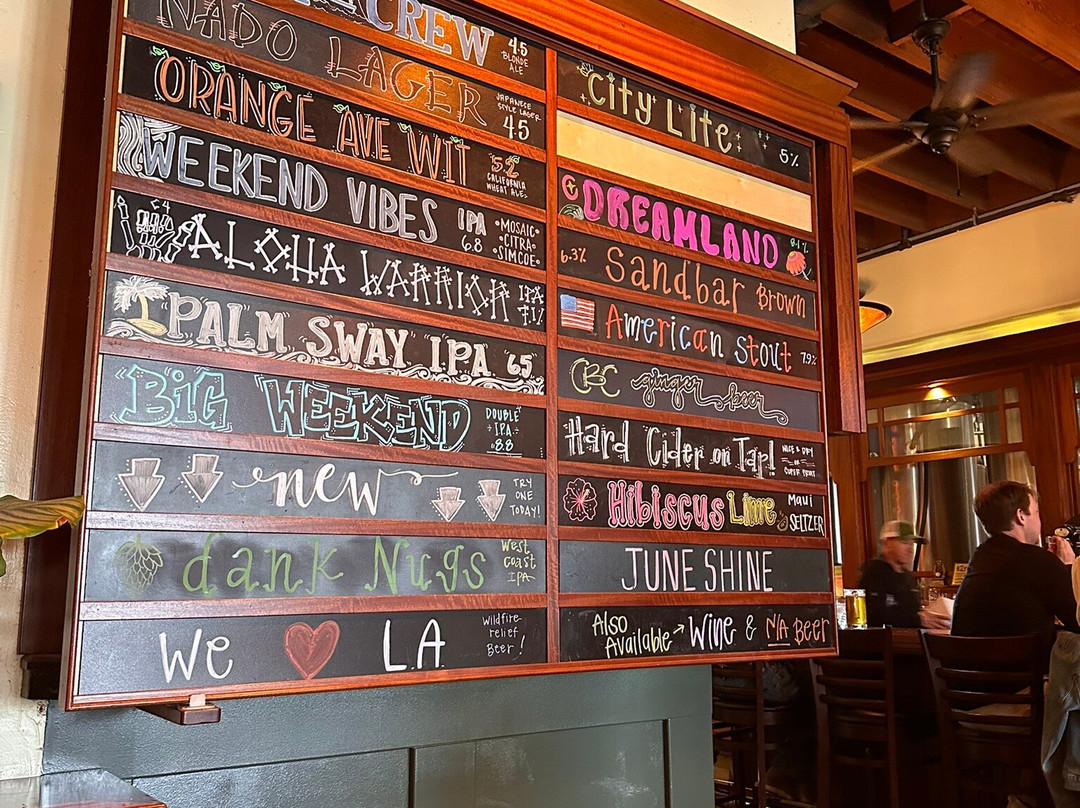 CREW
4.5
BLONDE
ALE
NADO LAGER
JAPANESE
STYLE LAGER
4.5
ORANGE AVE WIT
5.2
CALIFORNIA
WHEAT ALE
WEEKEND VIBES
IPA
6.8
•MOSAIC•
•CITRA•
•SIMCOE•
ALOHA WARRIOR
IPA
7.1%
PALM SWAY IPA 6.5
BIG WEEKEND
DOUBLE
IPA
8.8
new
TRY
ONE
TODAY!
dank Nugs
West
Coast
IPA
We ❤ LA
Wildfire-
relief
Beer!
City Lite
5%
DREAMLAND
6.3% Sandbar Brown
American Stout 7.9%
CBC ginger beer
Hard Cider on Tap!
Hibiscus Lime
Maui
SELTZER
JUNE SHINE
Also
Available → Wine & NA BEER